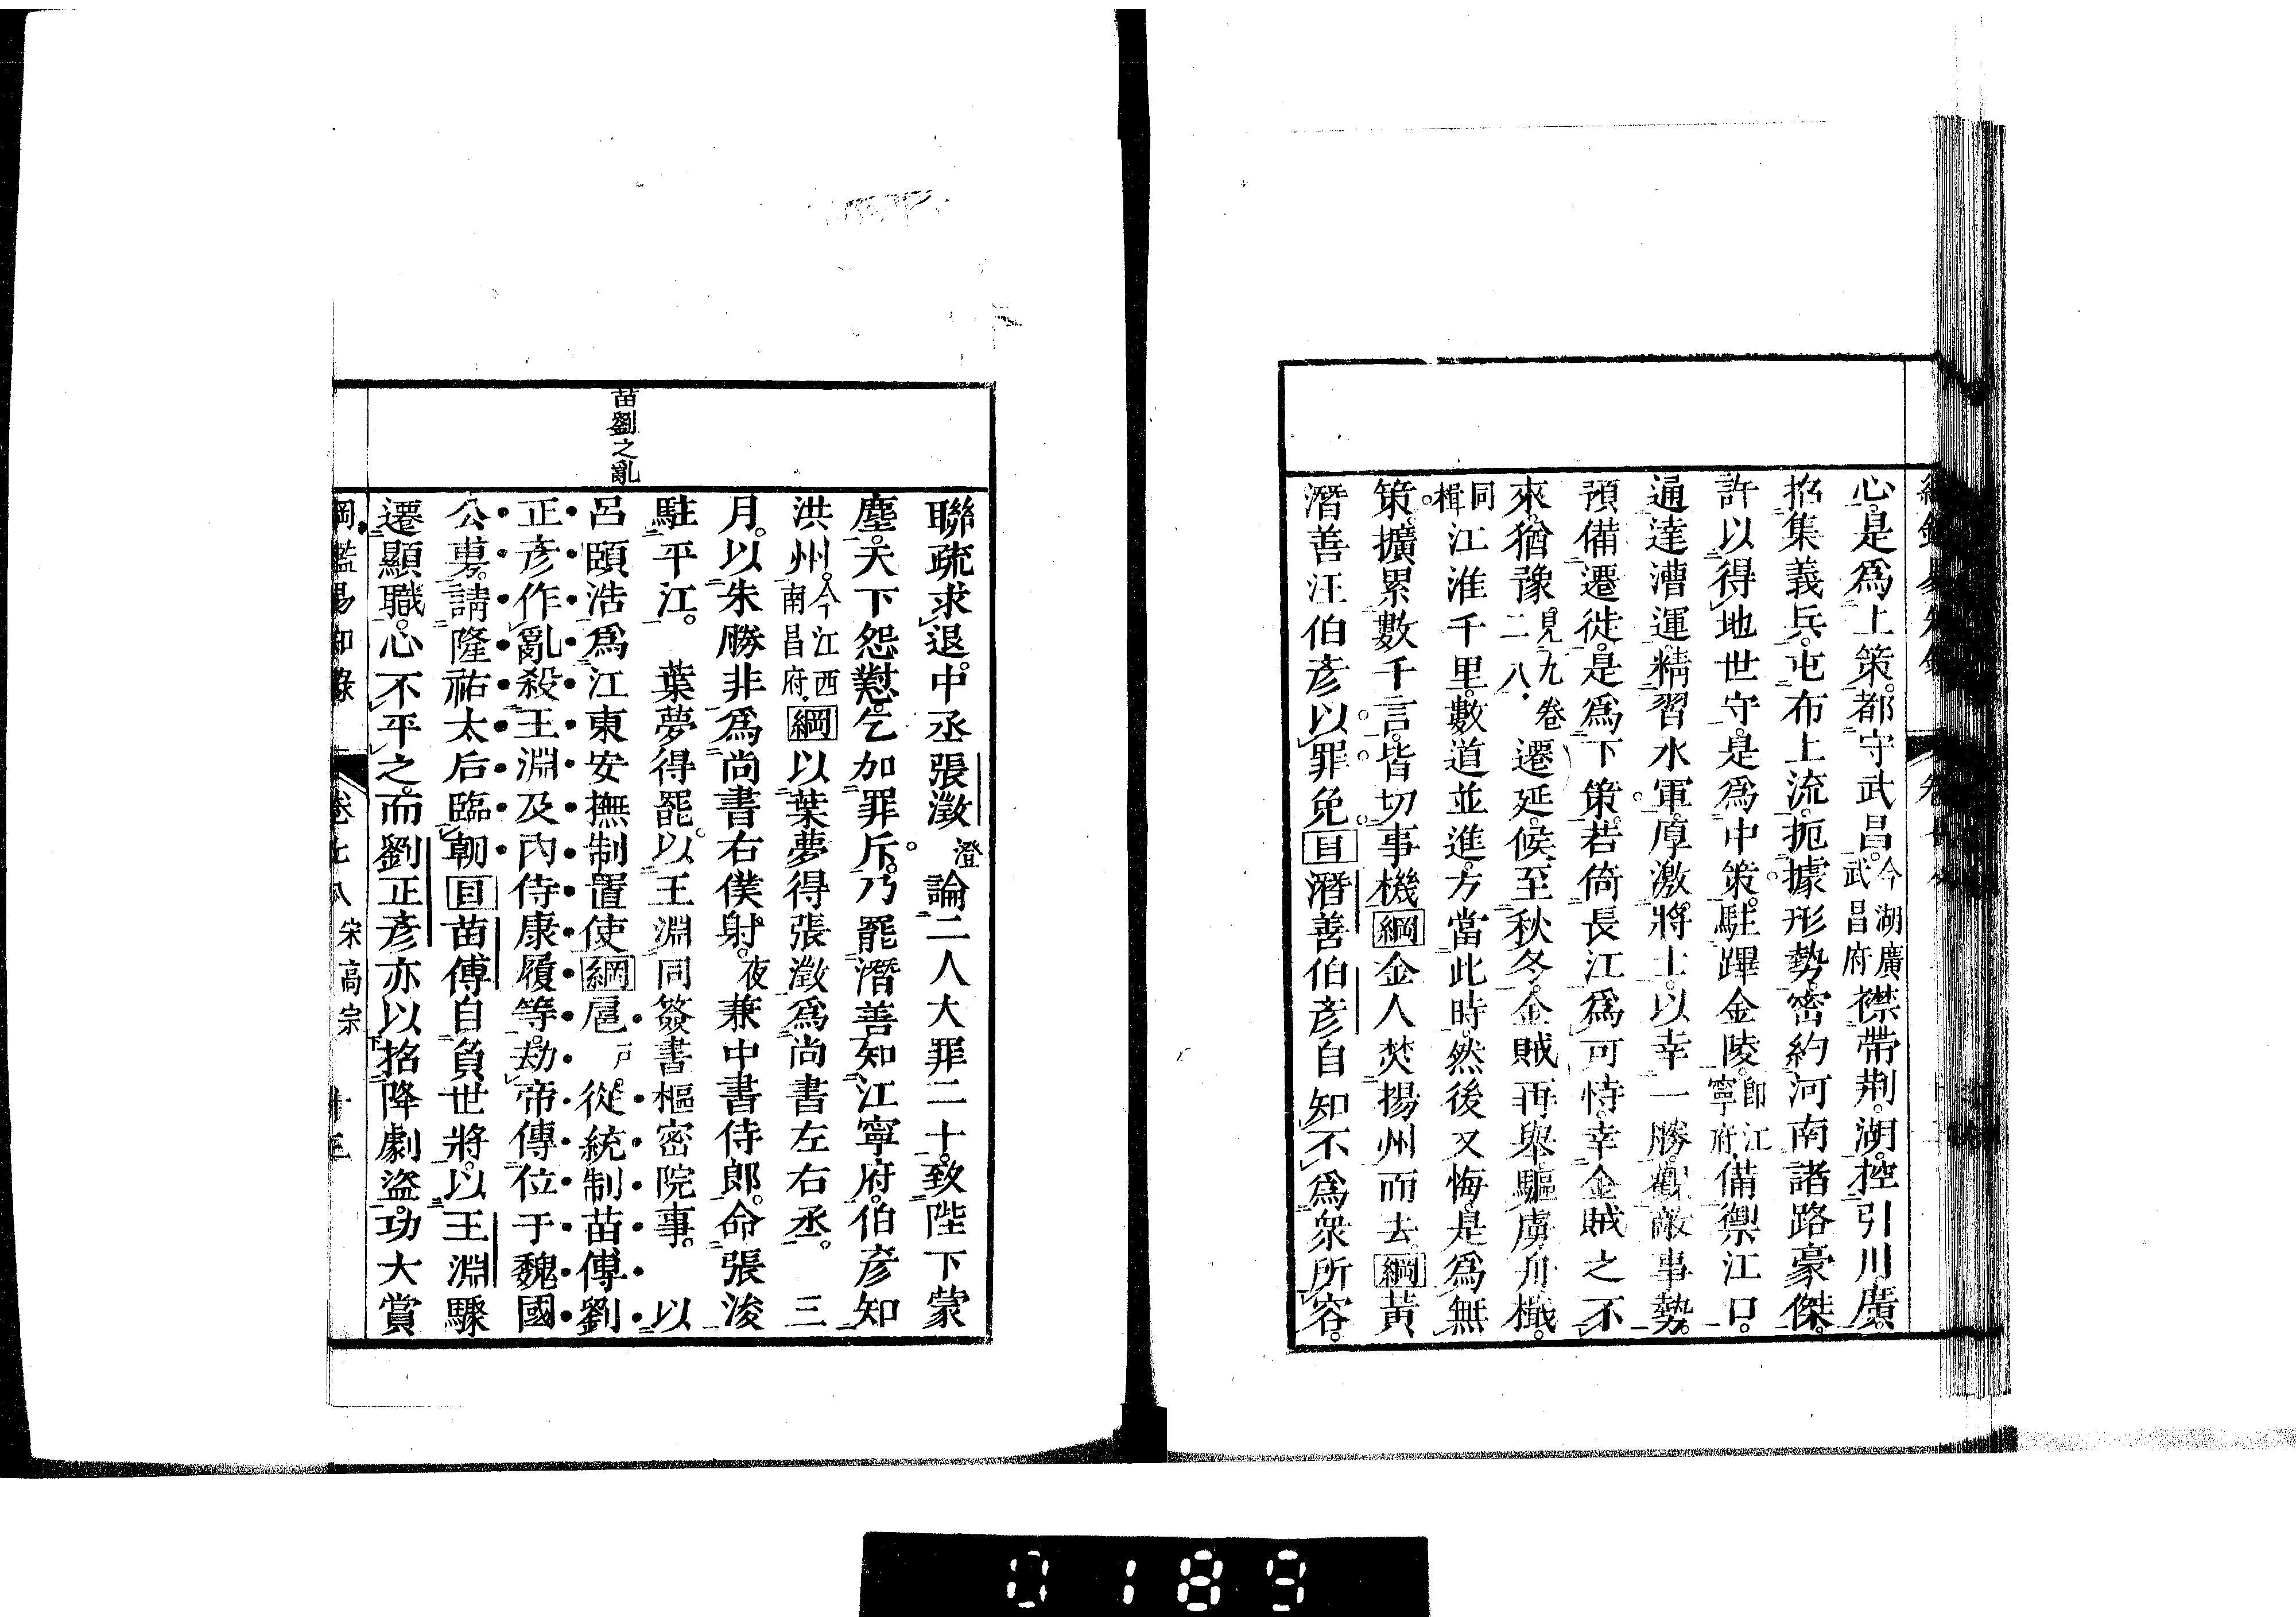 心。是爲上策。都守武昌。今湖廣武昌府襟帶荆湖。控引川廣。
招集義兵。屯布上流。扼據形勢。密約河南諸路豪傑。
許以得地世守。是爲中策。駐蹕金陵。卽江寧府備禦江口。
通達漕運。精習水軍。厚激將士。以幸一勝。觀敵事勢。
預備遷徙。是爲下策。若倚長江爲可恃。幸金賊之不
來。猶豫見九卷二八遷延。候至秋冬。金賊再舉。驅虜舟檝。
同楫江淮千里。數道並進。方當此時。然後又悔。是爲無
策。擴累數千言。皆切事機綱金人焚揚州而去。綱黃
潛善汪伯彥以罪免目潛善伯彥自知不爲衆所容。
苗劉之亂
聯疏求退。中丞張澂澄論二人大罪二十。致陛下蒙
塵。天下怨懟。乞加罪斥。乃罷潛善知江寧府。伯彥知
洪州。今江西南昌府綱以葉夢得張澂爲尚書左右丞。三
月。以朱勝非爲尚書右僕射。夜兼中書侍郎。命張浚
駐平江。葉夢得罷。以王淵同簽書樞密院事。以
呂頤浩爲江東安撫制置使綱扈戶從統制苗傅劉
正彥作亂殺王淵及內侍康履等。劫帝傳位于魏國
公旉。請隆祐太后臨朝目苗傅自負世將。以王淵驟
遷顯職。心不平之。而劉正彥亦以招降劇盜。功大賞
綱鑑易知錄 卷七八 宋高宗
0189